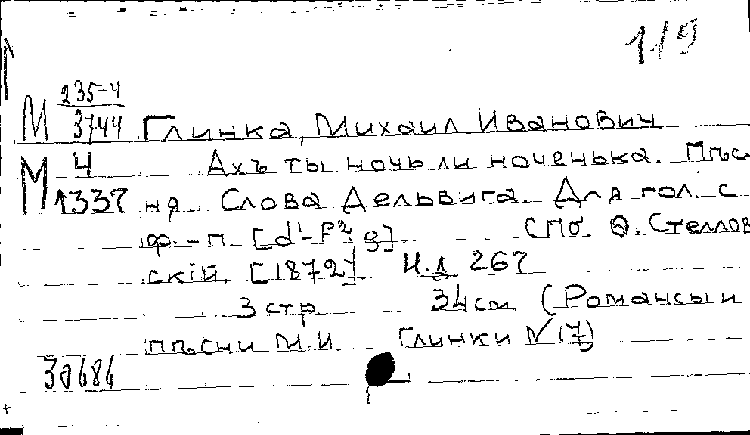 1/9
М 235-4
3744 Глинка, Михаил Иванович
М 4 Ахъ ты ночь ли ноченька. Пѣс
1337 ня. Слова Дельвига. Для гол. с
ф.-п. [d¹-f² g] СПб. Ѳ. Стеллов
скій. [1872] Н.д. 267
3 стр 34 см (Романсы и
пѣсни М.И. Глинки №17)